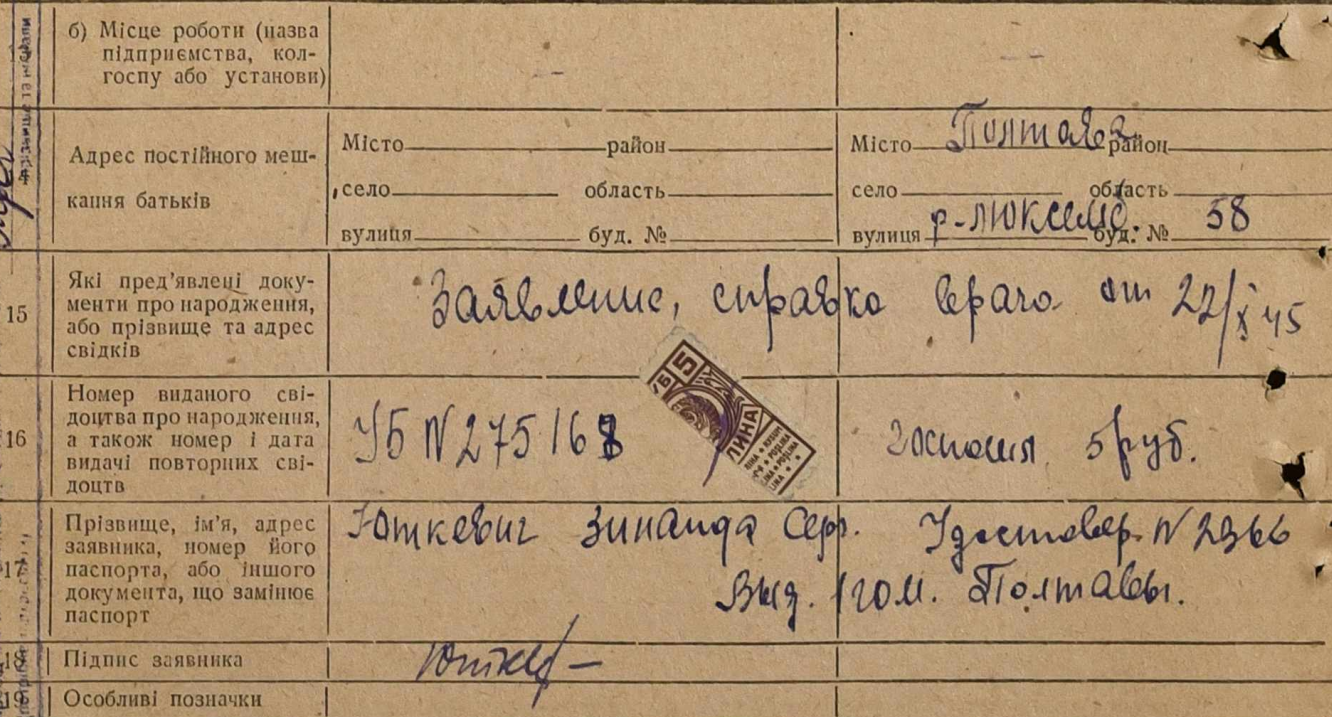 б) Місце роботи (назва
підприємства, кол-
госпу або установи)
Адрес постійного меш-
кання батьків
Місто район
село область
вулиця буд. №
Місто Полтава район
село область
вулиця р-люксемб. буд. № 58
15
Які пред'явлені доку-
менти про народження,
або прізвище та адрес
свідків
Заявление, справка врача от 22/X 45
16
Номер виданого сві-
доцтва про народження,
а також номер і дата
видачі повторних сві-
доцтв
УБ N 275168
5
госпошл 5 руб.
17
Прізвище, ім'я, адрес
заявника, номер його
паспорта, або іншого
документа, що замінює
паспорт
Юткевич Зинаида Серг. Удостовер. N 2966
Выд. 1 гом. Полтавы.
18
Підпис заявника
19
Особливі позначки